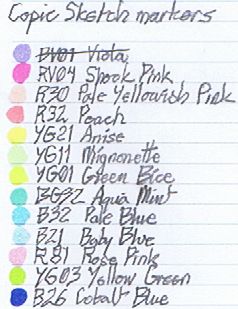 Copic Sketch markers
BV01 Viola
RV04 Shock Pink
R30 Pale Yellowish Pink
R32 Peach
YG21 Anise
YG11 Mignonette
YG01 Green Bice
BG32 Aqua Mint
B32 Pale Blue
B21 Baby Blue
R81 Rose Pink
YG03 Yellow Green
B26 Cobalt Blue